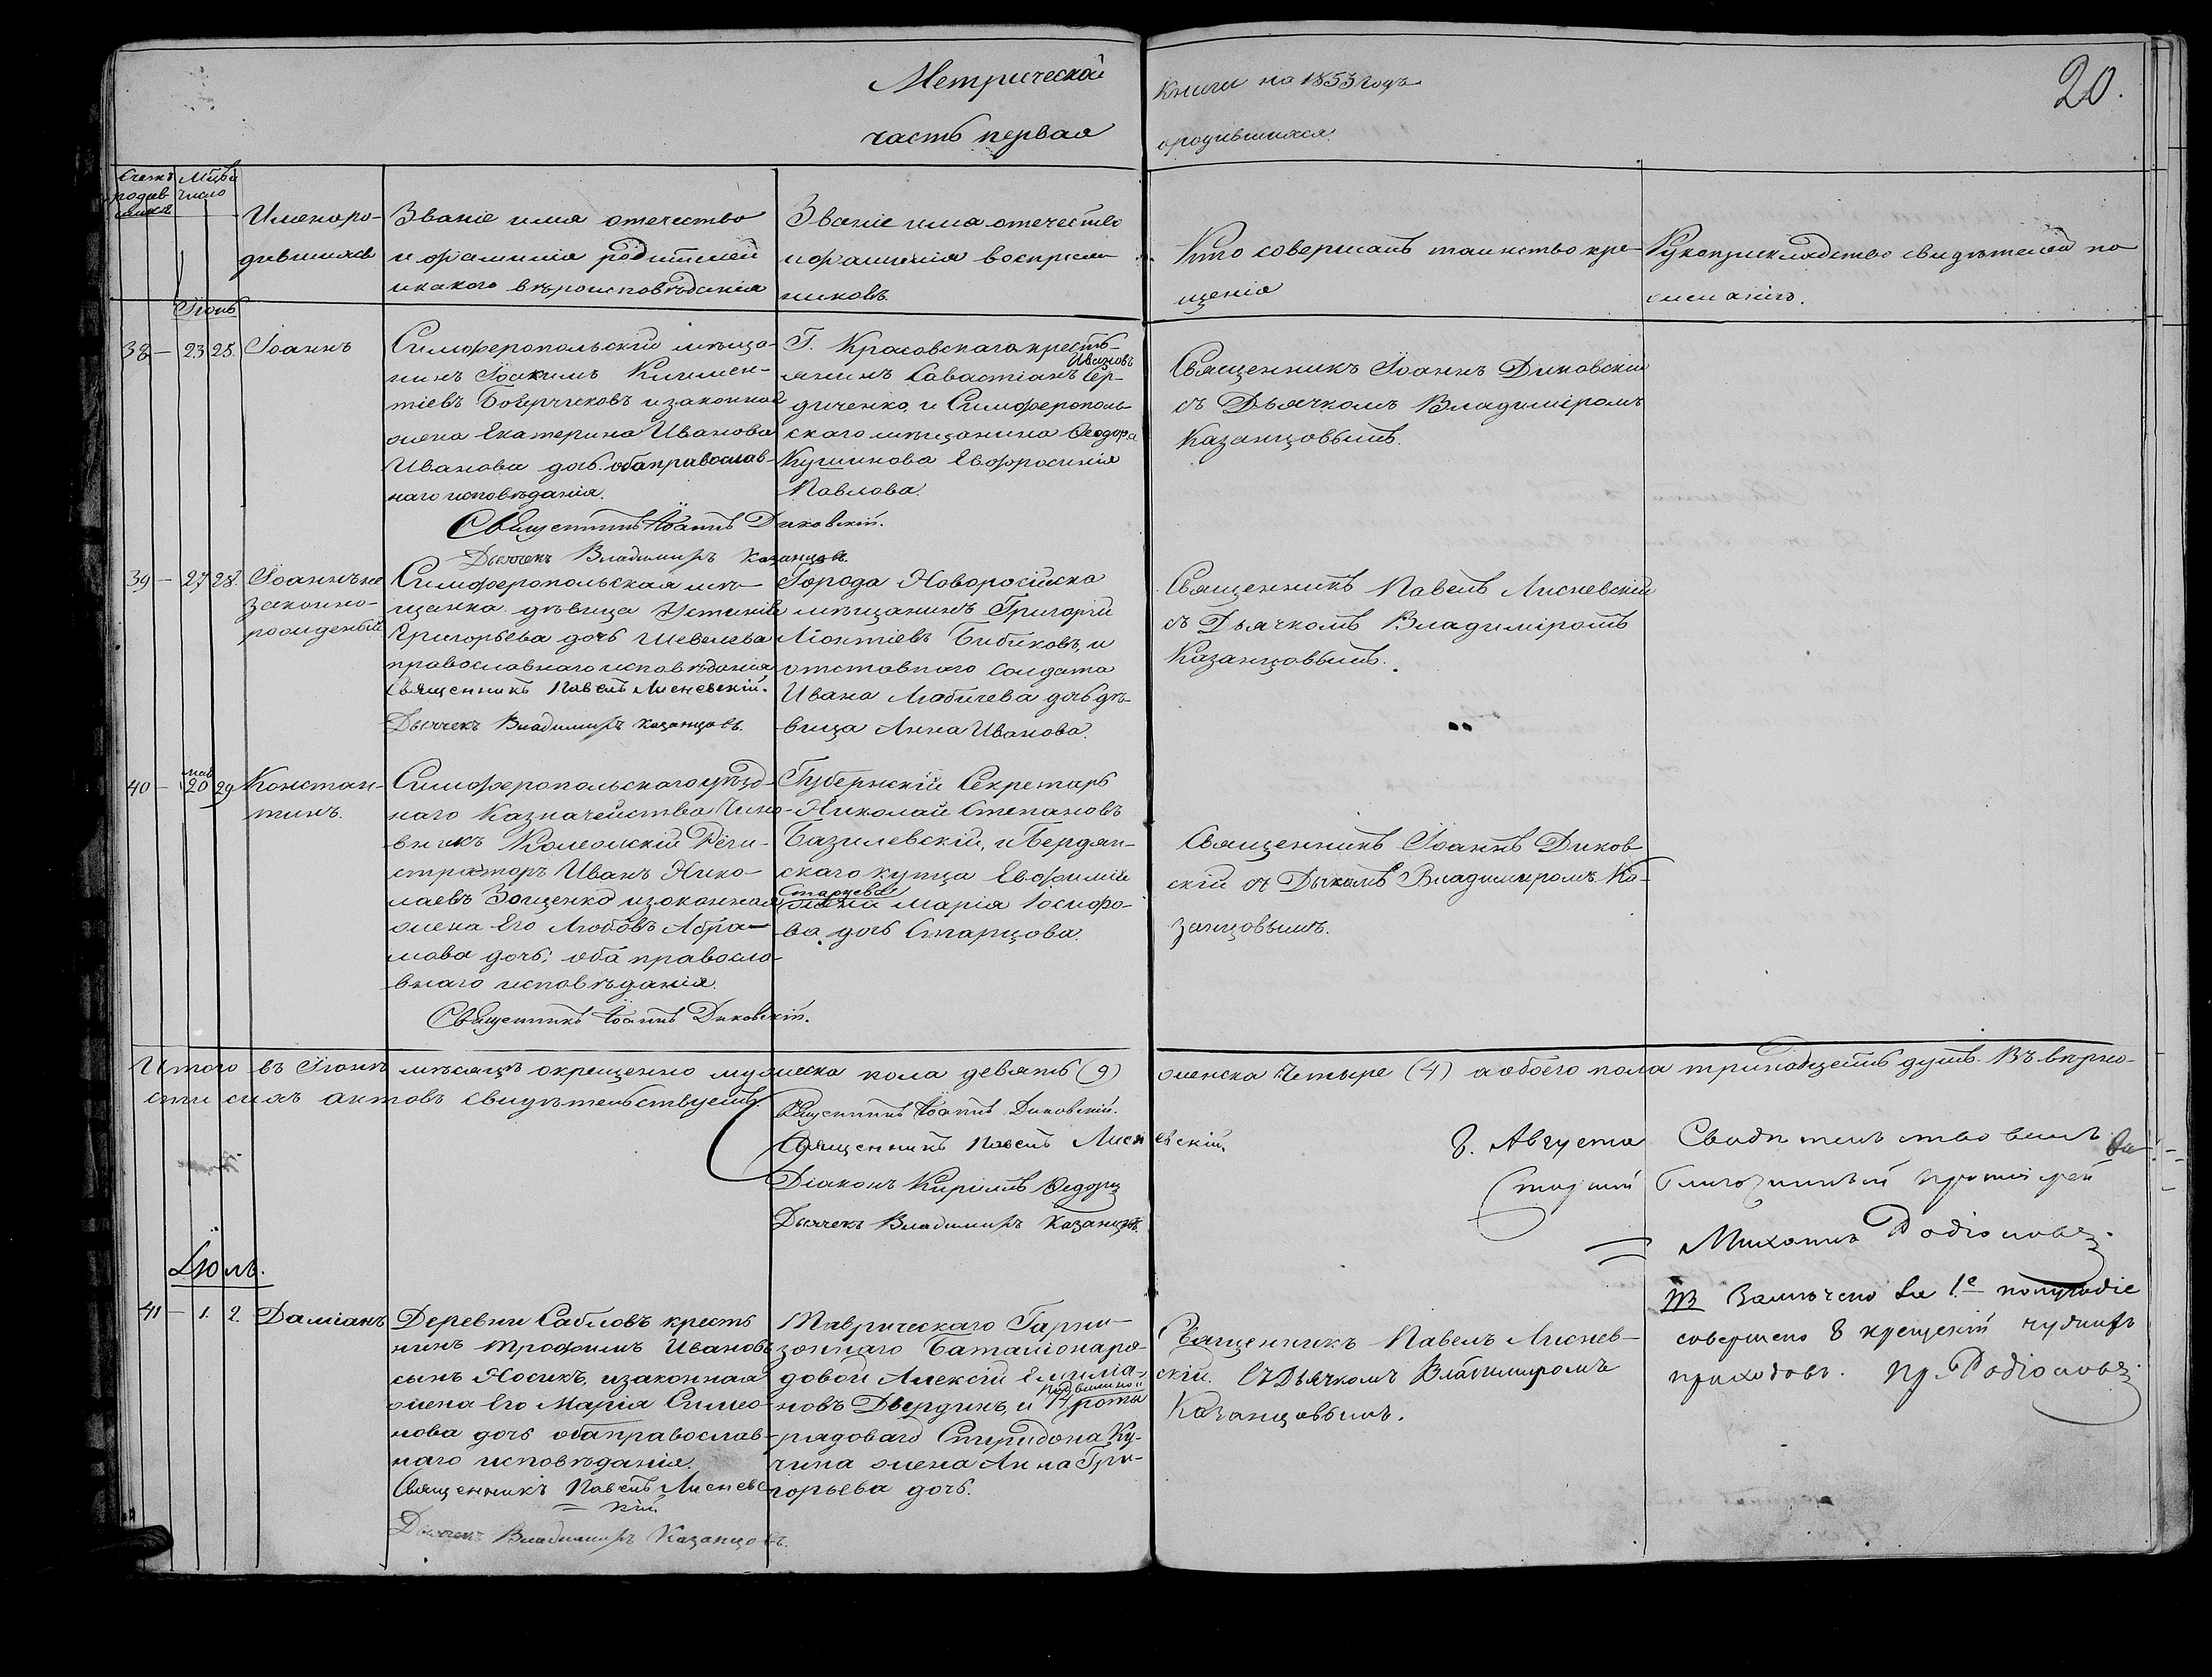 Метрической
часть первая
книги на 1853 годъ
ородившихся
20.
Счетъ родившихся
Мѣсяцъ число
Имена родившихся
Званіе имя отечество
и фамилія родителей
и какого вѣроисповѣданія
Званіе имя отечество
и фамилія воспреем-
никовъ
Кто совершалъ таинство кре-
щенія
Рукоприкладство свидѣтелей по
желанію.
Іюнь
38 — 23 28. Іоаннъ
Симферопольскій мѣща-
нинъ Іоакимъ Климен-
тіевъ и законная
жена Екатерина Иванова
Иванова дочь оба православ-
наго исповѣданія.
Г. Красовскаго кресть-
янинъ Савастіанъ Ивановъ Сер-
диченко, и Симферополь-
скаго мѣщанина Ѳеодора
Евфросинія
Павлова.
Священникъ Іоаннъ Диковскій.
Дьячекъ Владимиръ Казанцовъ.
Священникъ Іоаннъ Диковскій
съ Дьячкомъ Владиміромъ
Казанцовымъ.
39 — 27 28. Іоаннъ не
законно-
рожденый
Симферопольская мѣ-
щанка дѣвица Устинія
Григорьева дочь Шевелева
православнаго исповѣданія
Священникъ Павелъ Лисневскій.
Дьячекъ Владимиръ Казанцовъ.
Города Новоросійска
мѣщанинъ Григорій
Леонтіевъ Бибиковъ, и
отставнаго солдата
Ивана Лабичева дочь дѣ-
вица Анна Иванова.
Священникъ Павелъ Лисневскій
съ Дьячкомъ Владиміромъ
Казанцовымъ.
40 — мая 20 29 Констан-
тинъ.
Симферопольскаго уѣзд-
наго Казначейства Чино-
вникъ Колежскій Реги-
страторъ Иванъ Нико-
лаевъ Зощенко и законная
жена его Любовъ Абра-
мова дочь; оба правосла-
внаго исповѣданія.
Священникъ Іоаннъ Диковскій.
Губернскій Секретарь
Николай Степановъ
Базилевскій, и Бердян-
скаго купца Евфимія
Старцева жена Марія Іосифо-
ва дочь Старцова.
Священникъ Іоаннъ Диков
скій съ Дьчкомъ Владимиромъ Ка-
занцовымъ.
Итого въ Іюнѣ мѣсяцѣ окрещенно мужеска пола девять (9) женска Четыре (4) а обоего пола тринадцать душъ. Въ вѣрно-
сти сихъ актовъ свидѣтельствуемъ.
Священникъ Іоаннъ Диковскій.
Священникъ Павелъ Лисневскій.
Діаконъ Кирилъ
Дьячекъ Владимиръ Казанцовъ.
8. Августа Свидѣтельствовалъ
Благочинный Протоіерей
Михаилъ Родіоновъ.
NB Замѣчено за 1е полугодіе
совершено 8 крещеній чужихъ
приходовъ. Пр. Родіоновъ.
Іюль.
41 — 1. 2. Даміанъ
Деревни Сабловъ кресть
нинъ Трофимъ Ивановъ
сынъ Носикъ, и законная
жена его Марія Симео-
нова дочь оба православ-
наго исповѣданія.
Священникъ Павелъ Лисневс-
кій
Дьячекъ Владимиръ Казанцовъ.
Таврическаго Гарни-
зоннаго Баталіона ря-
довой Алексій Емиліа-
новъ Двердинъ, и роты
рядоваго Спиридона Ку-
чина жена Анна Гри-
горьева дочь.
Священникъ Павелъ Лиснев-
скій съ Дьячкомъ Владимиромъ
Казанцовымъ.